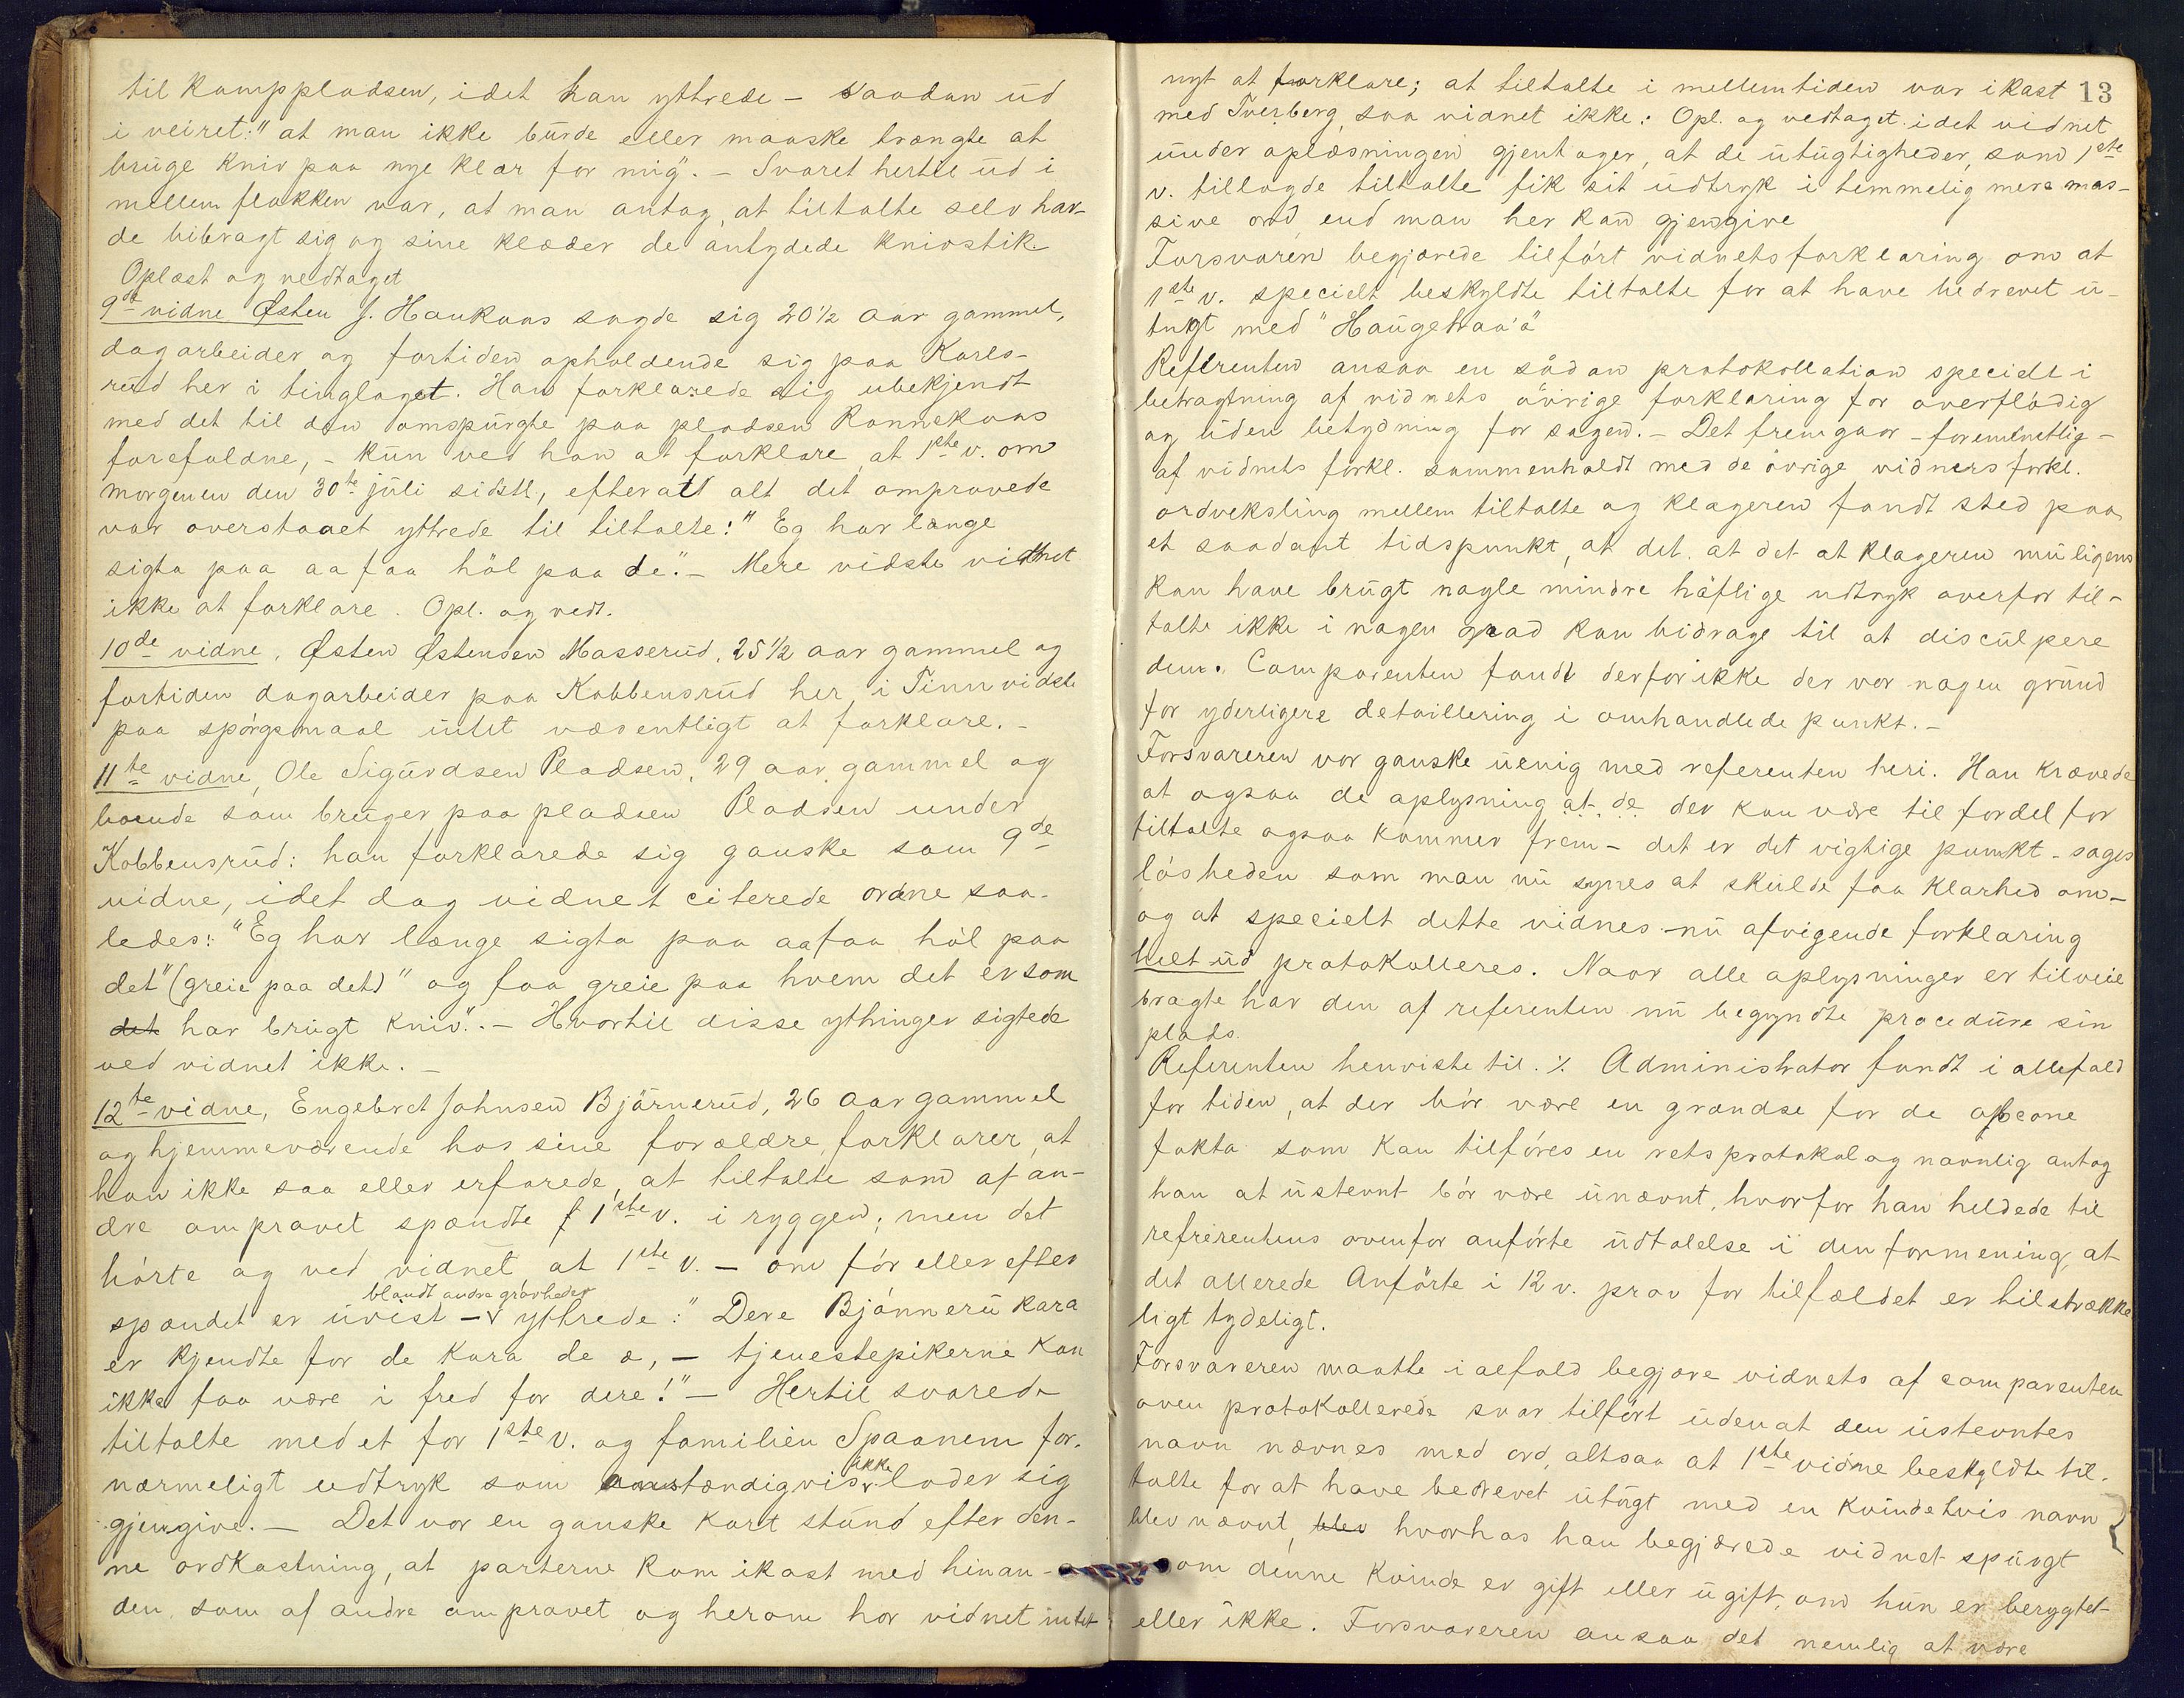 til kamppladsen, idet han yttrede – Saadan ud
i veiret:" at man ikke burde eller maaske trængte at
bruge kniv paa nye klær for mig". – Svaret hertil ud i
mellem flokken var, at man antog, at tiltalte selv hav-
de bibragt sig og sine klæder de antydede knivstik
Oplæst og vedtaget
9de vidne Østen J. Haukaas sagde sig 20½ aar gammel,
dagarbeider og fortiden opholdende sig paa Karls-
rud her i tinglaget. Han forklarede sig ubekjendt
med det til den omspurgte paa pladsen Rannekaas
forefaldne, – kun ved han at forklare, at 1ste v. om
morgenen den 30te juli sidstl., efterat alt det omprovede
var overstaaet yttrede til tiltalte:" Eg har længe
sigta paa aa faa höl paa de". – Mere vidste vidnet
ikke at forklare. Opl. og vedt.
10de vidne, Østen Østensen Masserud, 25½ aar gammel og
fortiden dagarbeider paa Kobbensrud her i Tinn vidste
paa spörgsmaal intet væsentligt at forklare. –
11te vidne, Ole Sigurdsen Pladsen, 29 aar gammel og
boende som bruger paa pladsen Pladsen under
Kobbensrud: han forklarede sig ganske som 9de
vidne, idet dog vidnet citerede ordne saa-
ledes: "Eg har længe sigta paa aa faa hól paa
det" (greie paa det) " og faa greie paa hvem det er som
det har brugt kniv". – Hvortil disse ythringer sigtede
ved vidnet ikke. –
12te vidne, Engebret Johnsen Björnerud, 26 aar gammel
og hjemmeværende hos sine forældre, forklarer, at
han ikke saa eller erfarede, at tiltalte som af an-
dre omprovet spændte f 1ste v. i ryggen; men det
hórte og ved vidnet at 1ste v. – om fór eller efter
blandt andre gróvheder
spændet er uvist – v yttrede: "Dere Bjónneru kara
er kjendte for de kara de æ, – tjenestepikerne kan
ikke faa være i fred for dere!" – Hertil svarede
tiltalte med et for 1ste v. og familien Spaanem for-
nærmeligt udtryk som anstændigvis ikke lader sig
gjengive. – Det var en ganske kort stund efter den-
ne ordkastning, at parterne kom ikast med hinan-
den, som af andre omprovet og herom har vidnet intet
13
nyt at forklare; at tiltalte i mellemtiden var ikast
med Tverberg, saa vidnet ikke: Opl. og vedtaget idet vidnet
under oplæsningen gjentager, at de utugtigheder, som 1ste
v. tillagde tiltalte fik sit udtryk i temmelig mere mas-
sive ord, end man her kan gjengive
Forsvaren begjærede tilfört vidnets forklaring om at
1ste v. specielt beskyldte tiltalte for at have bedrevet u-
tugt med "Haugetraa'a"
Referenten ansaa en sådan protokollation specielt i
betragtning af vidnets övrige forklaring for overflódig
og uden betydning for sagen. – Det fremgaar – foremnetlig –
af vidnets forkl. sammenholdt med de övrige vidners forkl.
ordveksling mellem tiltalte og klageren fandt sted paa
et saadant tidspunkt, at det. at det at klageren muligens
kan have brugt nogle mindre höflige udtryk overfor til-
talte ikke i nogen grad kan bidrage til at disculpere
dem. Comparenten fandt derfor ikke der var nogen grund
for yderligere detaillering i omhandlede punkt. –
Forsvareren var ganske uenig med referenten heri. Han krævede
at ogsaa de oplysning at de der kan være til fordel for
tiltalte ogsaa kommer frem – det er det vigtige punkt – sages
lósheden som man nu synes at skulde faa klarhed om –
og at specielt dette vidnes nu afvigende forklaring
helt ud protokolleres. Naar alle oplysninger er tilveie
bragte har den af referenten nu begyndte procedure sin
plads.
Referenten henviste til. ⁒ Administrator fandt i allefald
for tiden, at der bór være en grændse for de obscøne
fakta som kan tilföres en retsprotokol og navnlig antog
han at ustevnt bór være unævnt, hvorfor han heldede til
refrerentens ovenfor anförte udtalelse i den formening, at
det allerede Anförte i 12 v. prov for tilfældet er tilstrække
ligt tydeligt.
Forsvareren maatte i alfald begjære vidnets af comparenten
oven protokollerede svar tilfört uden at den ustevntes
navn nævnes med ord, altsaa at 1ste vidne beskyldte til-
talte for at have bedrevet utugt med en kvinde hvis navn
blev nævnt, blev hvorhos han begjærede vidnet spurgt
om denne kvinde er gift eller ugift, om hun er berygtet
eller ikke. Forsvareren ansaa det nemlig at være